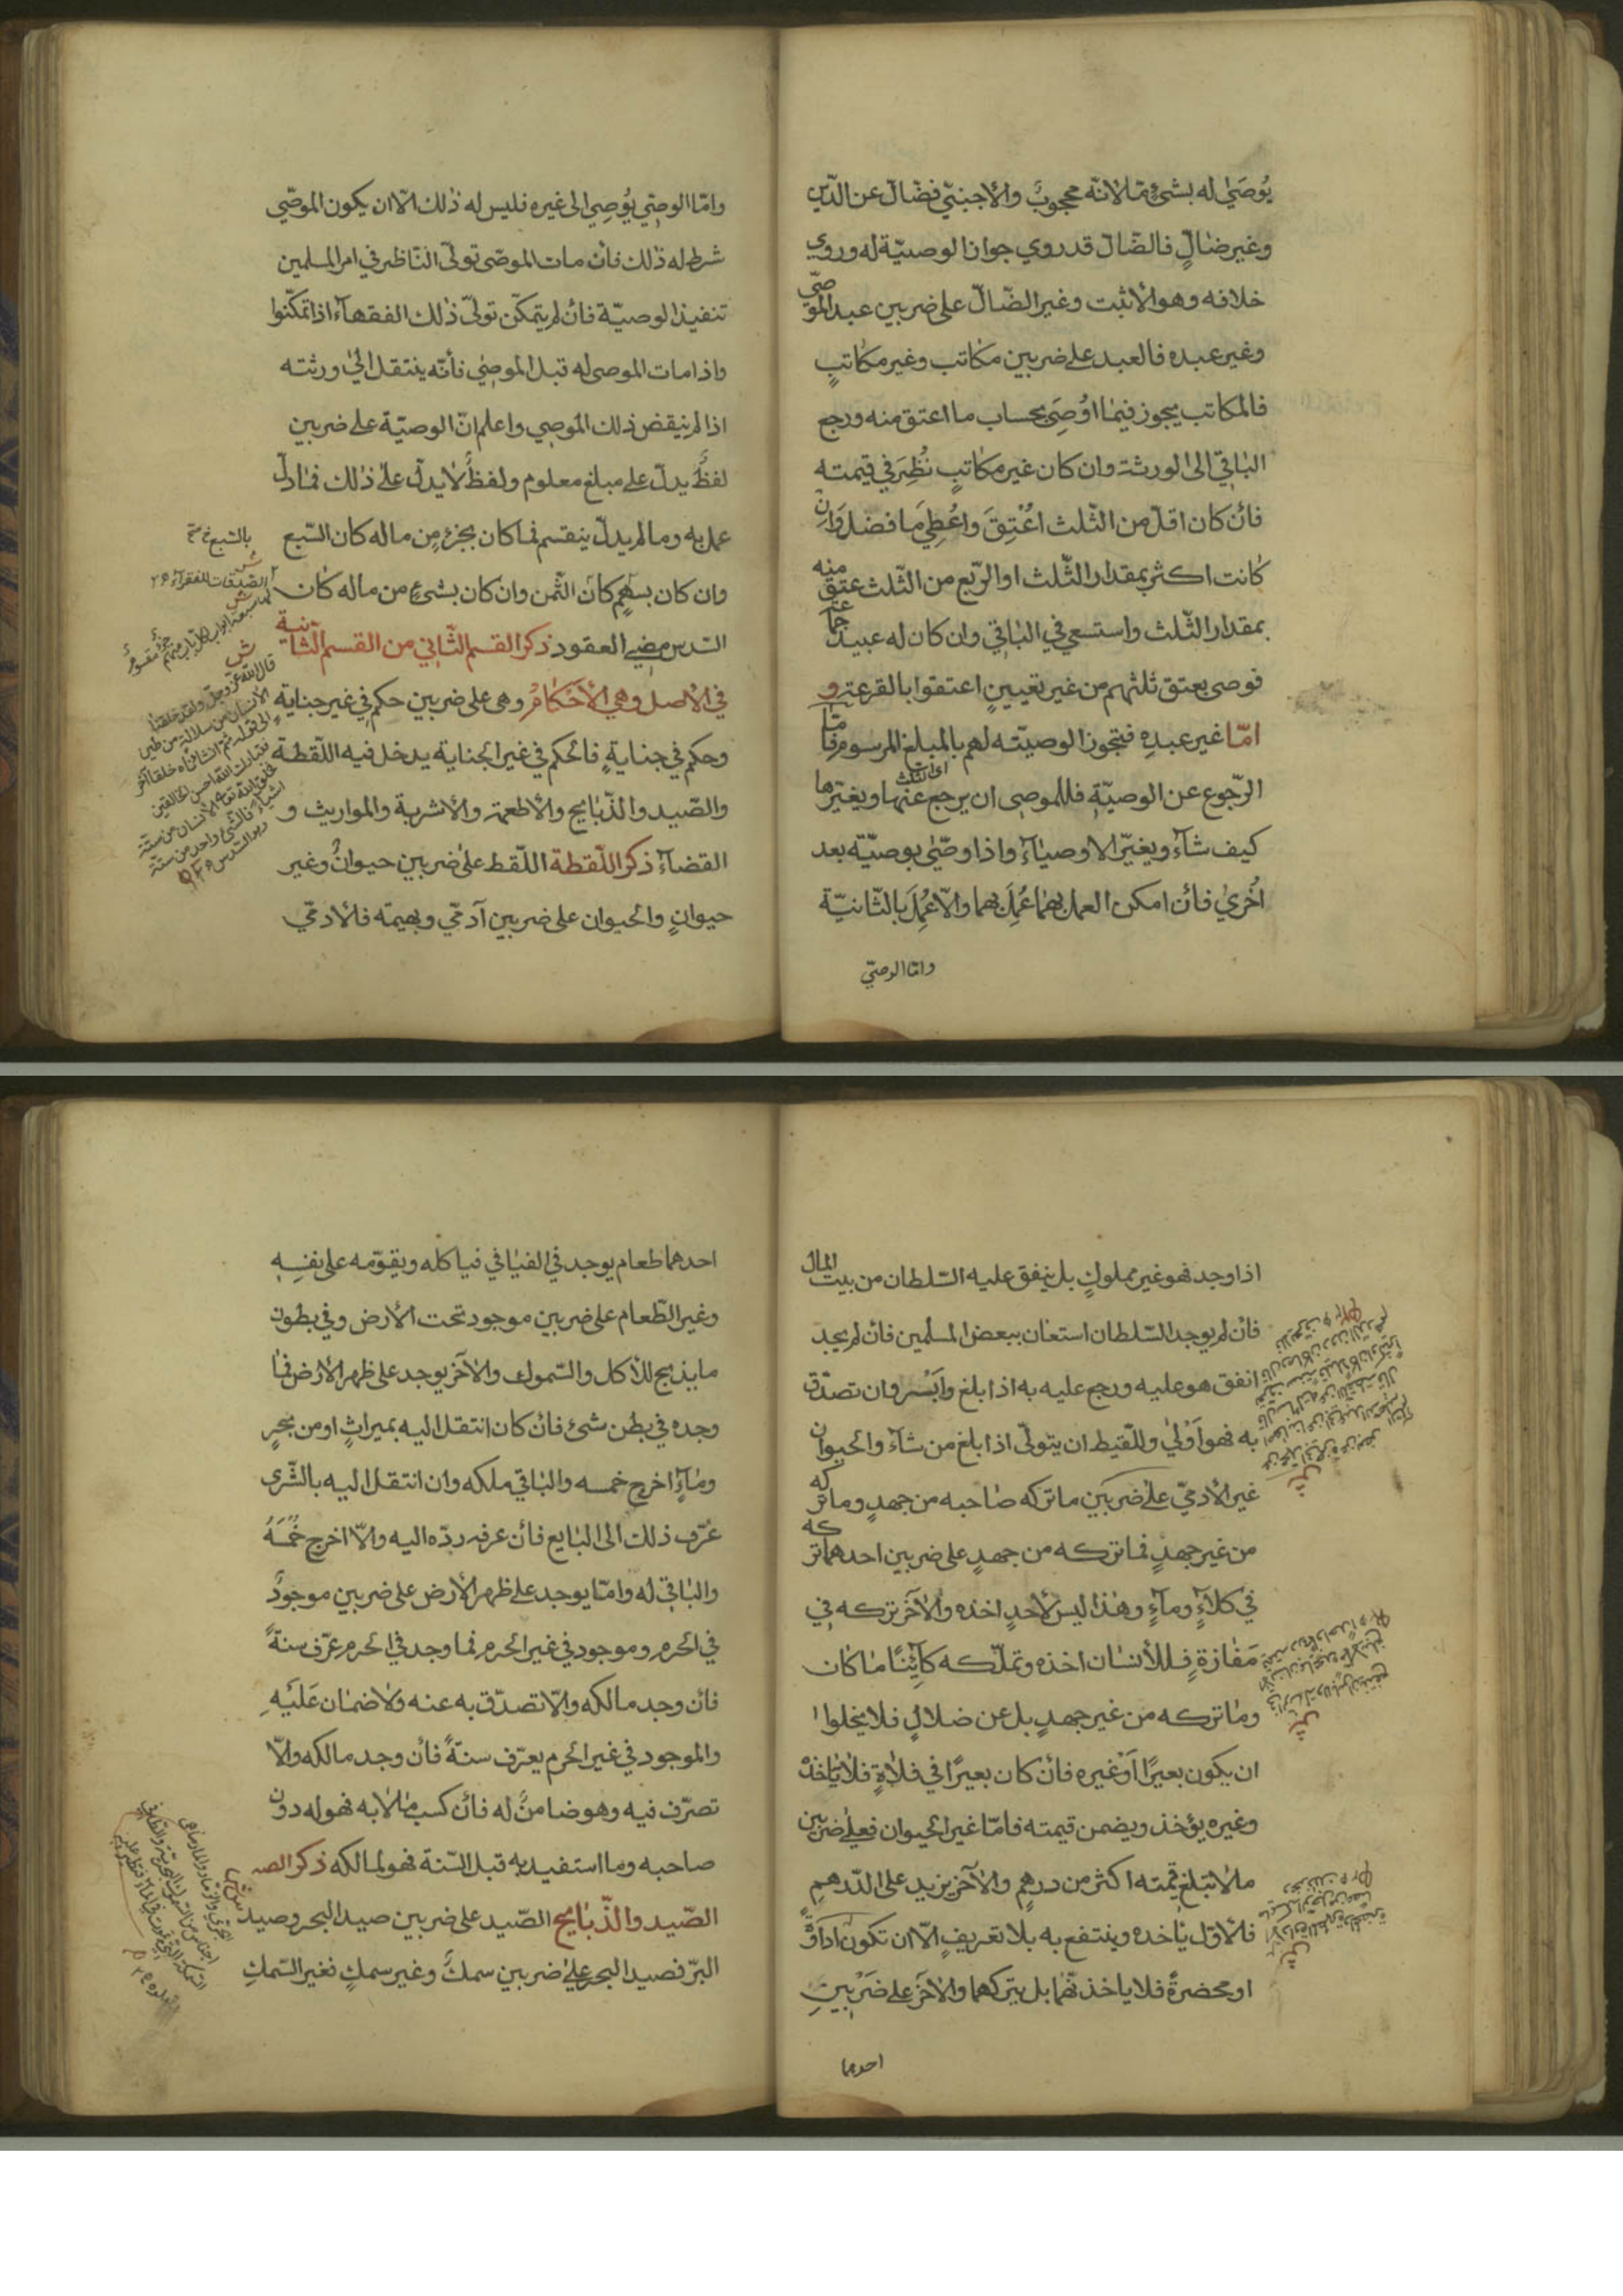 يُوصَىٰ له بشئ ممّا لانّه محجوبٌ والأجنبيّ فضّالّ عن الدّين
وغير ضالٍّ فالضّالّ قد روي جواز الوصيّة له وروي
خلافه وهو الأثبت وغير الضّالّ على ضربين عبد الموصّي
وغير عبده فالعبد على ضربين مكاتب وغير مكاتبٍ
فالمكاتب يجوز فيما اُوصِيَ بحساب ما اعتق منه ورجع
الباقي الى الورثة وان كان غير مكاتبٍ نُظِرَ في قيمته
فأن كان اقلّ من الثّلث اعُتِقَ واعُطِيَ ما فضل وَانِ
كانت اكثر بمقدار الثّلث او الرّبع من الثّلث عتق منه
بمقدار الثّلث واستسعي في الباقي وان كان له عبيد جما عة
فوصى بعتق ثلثهم من غير تعيينٍ اعتقوا بالقرعة و
امّا غير عبدهِ فتجوز الوصيّته لهم بالمبلغ المرسوم فامّا
الرّجوع عن الوصيّةِ فللموصى ان يرجع عنها ويغيّرها
اى الثلث
كيف شآء ويغيّر الاوصيآء واذا وصّىٰ بوصيّة بعد
اُخرىٰ فأن امكن العمل بهما عُمِلَ بهما والاّ عُمِلَ بالثّانيّة
وامّا الوصيّ
وامّا الوصيّ يُوصِي الى غيره فليس له ذٰلك الاّ ان يكون الموصّي
شرط له ذٰلك فأن مات الموصّى تولّى النّاظر في امر المسلمين
تنفيذ الوصيّة فأن لم يتمكّن تولّىٰ ذٰلك الفقهآء اذا تمكّنوا
واذا مات الموصى له قبل الموصِي فأنّه ينتقل الىٰ ورثته
اذا لم ينقض ذلك الموصِي واعلم انّ الوصيّة على ضربين
لفظٌ يدلّ على مبلغ معلوم ولفظٌ لا يدلّ علىٰ ذٰلك فما دلّ
عمل به وما لم يدلّ ينقسم فما كان بجزءٍ مِن ماله كان السّبع
وان كان بسهمٍ كان الثّمن وان كان بشئٍ من ماله كان
السّدس مضىٰ العقود ذكر القسم الثّاني من القسمة الثّانية
في الأصل وهي الأحَكٰامُ وهى على ضربين حكم في غير جناية
وحكم في جنايةٍ فالحكم في غير الجناية يدخل فيه اللّقطة
والصّيد والذّبايح والأطعمة والأشربة والمواريث و
القضآء ذكر اللّقطة اللّقط علىٰ ضربين حيوانٌ وغير
حيوانٍ والحيوان على ضربين آدميّ وبهيمة فالأدميّ
ش
قال الله عزّ وجلّ ولقد خلقنا
الأنسان من سلالة من طين
الى قوله ثمّ انشأناه خلقاً آخر
فتبارك الله احسن الخالقين
خلق الله تعالى الأنسان من ستّة
اشياء فالشئ واحد من ستّة
وهو السّدس
اذا وجد فهو غير مملوكٍ بل ينفق عليه السّلطان من بيت المال
فأن لم يوجد السّلطان استعان ببعض المسلمين فأن لم يجد
انفق هو عليه ورجع عليه به اذا بلغ وأيَسْر وان تصدّق
به فهو اَوْلىٰ واللّقيط ان يتولّى اذا بلغ من شآء والحيوان
غير الأدميّ علىٰ ضربَين ما تركه صاحبه من جهدٍ وما تركه
من غير جهدٍ فما تركه من جهدٍ على ضربين احدهما تركه
في كلآءٍ ومآءٍ وهٰذا ليس لأحدٍ اخذه والآخر تركه في
مَفٰازةٍ فللأنسٰان اخذه وتملّكه كآئِنًا مٰا كان
ومٰا تركه من غير جهدٍ بل عن ضلالٍ فلا يخلوا
ان يكون بعيرًا اَوْ غيره فأن كان بعيرًا في فلاةٍ فلا يٰاخذه
وغيره يؤخذ ويضمن قيمته فامّا غير الحيوان فعلىٰ ضربين
ما لا تبلغ قيمته اكثر من درهمٍ والآخر يزيد على الدّرهمِ
فالأوّل يٰاخذه وينتفع به بلا تعريفٍ الاّ ان تكون اداَوةً
او مخصرةً فلا ياخذ نّهما بل يتركهما والآخر على ضَربينِ
احدهما
احدهما طعام يوجد في الفيٰافي فيٰاكله ويقوّمه على نفسِهِ
وغير الطّعام على ضربين موجود تحت الأرض وفي بطون
ما يذبح للأكل والسّموك والآخر يوجد على ظهر الأرض فمٰا
وجده في بطن شئ فأن كان انتقل اليه بميراثٍ او من بحرٍ
ومٰآءٍ اخرج خمسه والبٰاقي ملكه وان انتقل اليه بالشّرى
عُرّف ذلك الى البٰايع فأن عرفه ردّه اليه والاّ اخرج خُمسَهُ
والبٰاقي له وامّا يوجد علىٰ ظهر الأرض على ضربين موجودٌ
في الحرم وموجود في غير الحرم فما وجد في الحرم عرّف سنةً
فأن وجد مالكه والاّ تصدّق به عنه ولا ضمٰان عَلَيهِ
والموجود في غير الحرم يعرّف سنةً فأن وجد مالكه والاّ
تصرّف فيه وهو ضامنٌ له فأن كسب مٰالا به فهو له دون
صاحبه وما استفيد به قبل السّنة فهو لمالكه ذكر الصـ
الصّيد والذّبايح الصّيد على ضربين صيد البحر وصيد
البرّ فصيد البحر علىٰ ضربين سمكٌ وغير سمكٍ فغير السّمكِ